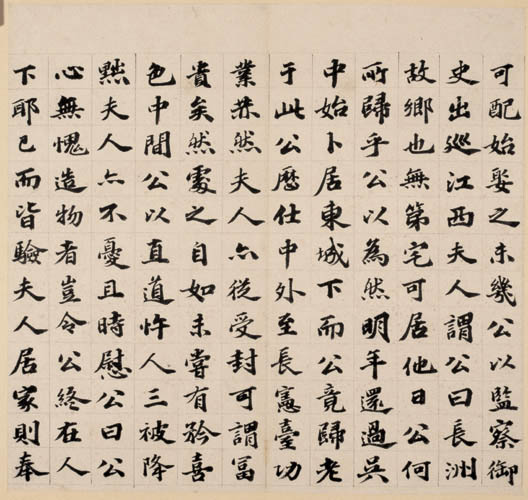 可配始娶之未幾公以監察御
史出廵江西夫人謂公曰長洲
故鄉也無第宅可居他日公何
所歸乎公以為然明年還過吳
中始卜居東城下而公竟歸老
于此公歷仕中外至長憲臺功
業赫然夫人亦從受封可謂冨
貴矣然處之自如未嘗有矜喜
色中間公以直道忤人三被降
黜夫人亦不憂且時慰公曰公
心無愧造物者豈令公終在人
下耶已而皆驗夫人居家則奉